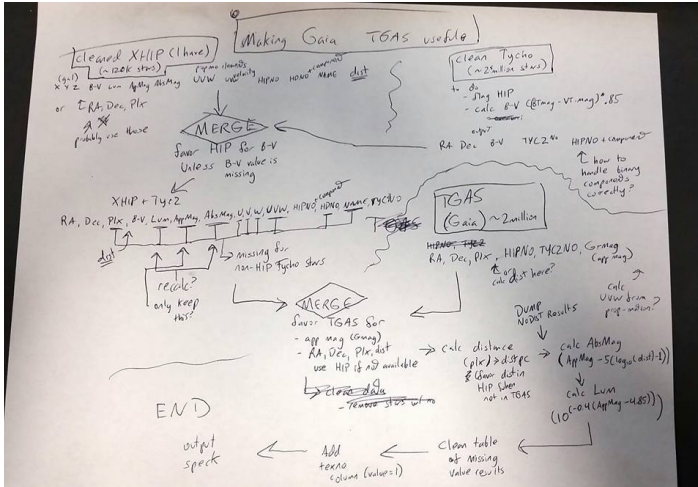 Making Gaia TGAS useful
cleaned XHIP (I have)
(~120k stars)
(gal)
X Y Z B-V Lum AppMag AbsMag UVW HIPNO HDNO NAME dist
+component
or RA, Dec, Plx
probably use those
clean Tycho
(~2.5 million stars)
to do
- flag HIP
- calc B-V (BTmag - VT.mag)*.85
output
RA Dec B-V TYC2 No HIPNO + component
how to
handle binary
components
correctly?
MERGE
favor HIP for B-V
Unless B-V value is
missing
XHIP + Tyc2
RA, Dec, Plx, B-V, Lum, AppMag, AbsMag, U, V, W, UVW, HIPNO, HDNO, NAME, TYC2NO
+component
dist
missing for
non-HIP Tycho stars
recalc?
only keep
this?
TGAS
TGAS
(Gaia) ~2million
HIPNO, TYC2
RA, Dec, Plx, HIPNO, TYC2NO, Gmag
(app mag)
or
calc dist here?
calc
UVW from
prop-motion?
MERGE
favor TGAS for
- app mag (Gmag)
- RA, Dec, Plx, dist
use HIP if not available
clean data
- remove stars w/ no
DUMP
NoDIST Results
calc distance
(plx) → distpc
& favor dist in
HIP when
not in TGAS
calc AbsMag
(AppMag - 5(log10(dist)-1))
calc Lum
(10^(-0.4(AppMag - 4.85)))
Clean table
of missing
value results
Add
texno
column (value=1)
output
speck
END